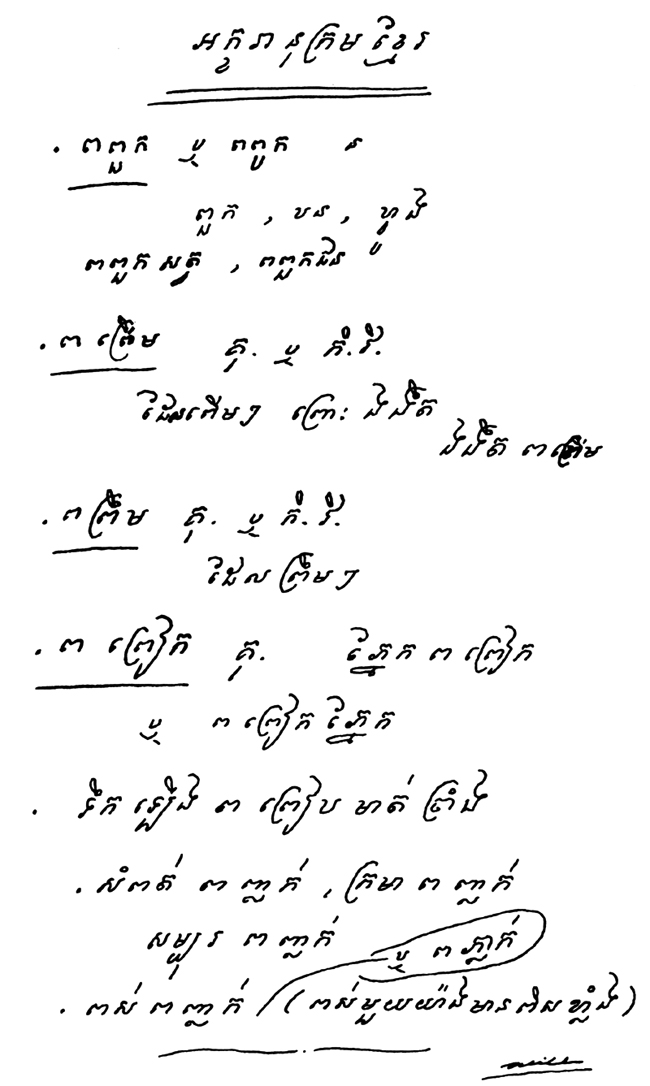 អក្ខរានុក្រមខ្មែរ
. ពពួក ឬ ពពូក ន
ពួក , បន , ហ្វូង
ពពួកសត្វ , ពពួកជន
. ពព្រើម គុ. ឬ កិ.វិ.
ដែលព្រើមៗ ព្រោះ ងងឹត
ងងឹត ពព្រើម
. ពព្រឹម គុ. ឬ កិ.វិ.
ដែលព្រឹមៗ
. ពព្រៀក គុ. ភ្នែក ពព្រៀក
ឬ ពព្រៀកភ្នែក
. ទឹកឡើង ពព្រៀប មាត់ ច្រាំង
. សំពត់ ពញ្លាក់ , ក្រមា ពញ្លាក់
សម្បុរ ពញ្លាក់ ឬ ពភ្លាក់
. ពស់ពញ្លាក់ (ពស់មួយយ៉ាងមានពិសខ្លាំង)